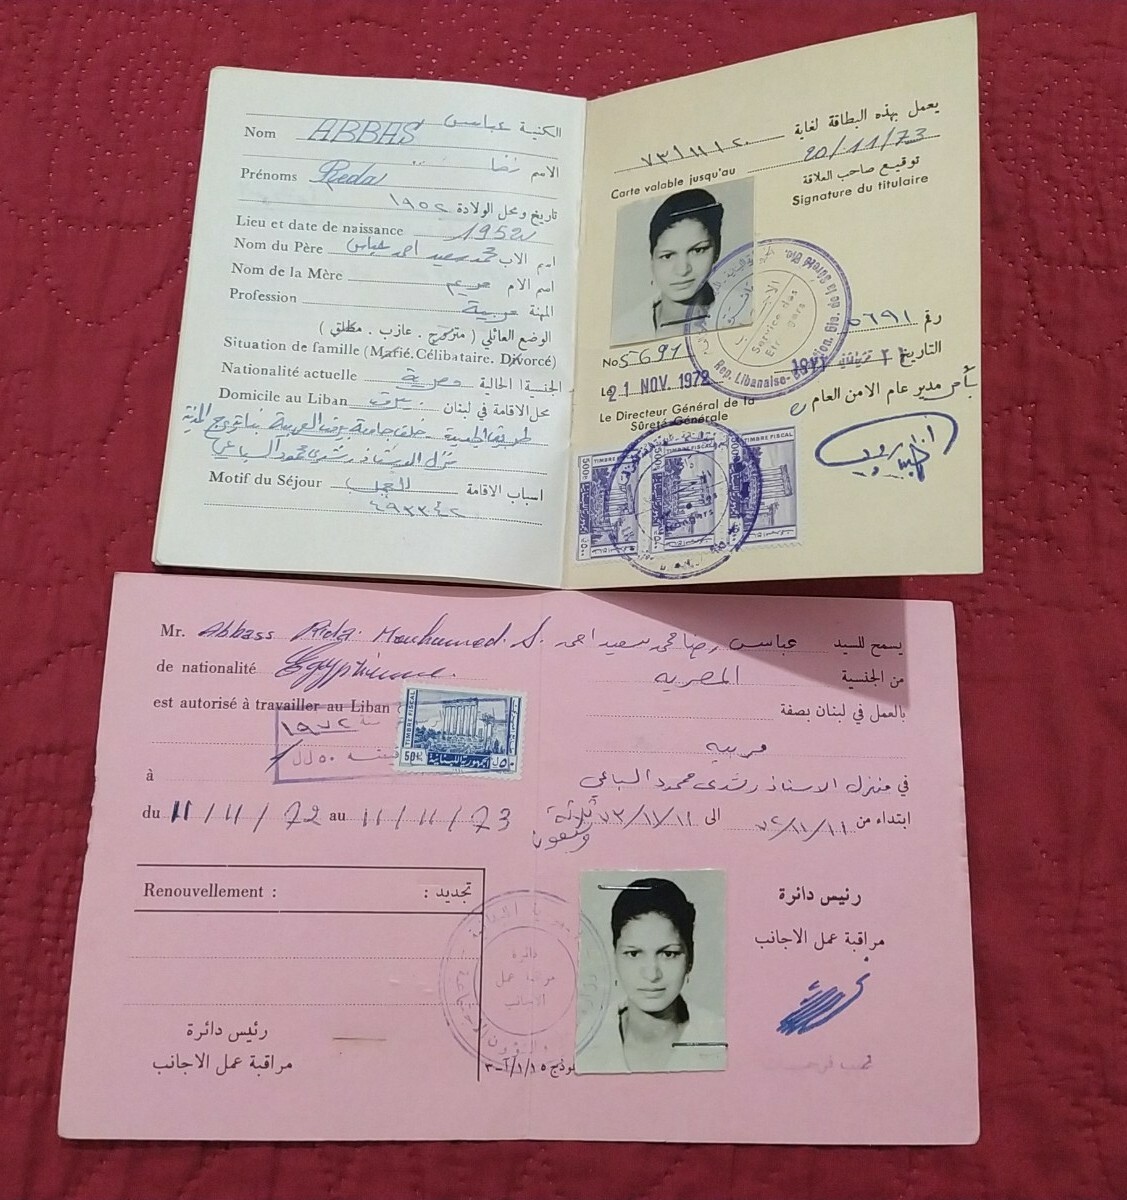 الكنية عباس
Nom ABBAS
الاسم رضا
Prénoms Reda
تاريخ ومحل الولادة ١٩٥٢
Lieu et date de naissance 1952
Nom du Père اسم الاب محمد سعيد احمد عباس
Nom de la Mère اسم الام مريم
Profession المهنة مربية
الوضع العائلي ( متزوج . عازب . مطلق )
Situation de famille (Marié.Célibataire. Divorcé)
Nationalité actuelle الجنسية الحالية مصرية
Domicile au Liban محل الاقامة في لبنان
منزل الاستاذ رشدي محمود السباعي
Motif du Séjour اسباب الاقامة العمل
٤٩٣٣٤٢
يعمل بهذه البطاقة لغاية
٧٣/١١/٢٠
Carte valable jusqu'au 20/11/73
توقيع صاحب العلاقة
Signature du titulaire
Service des Etrangers
Rep. Libanaise
رقم ٥٦٩١
No 5691
التاريخ
Le 21 NOV. 1972
مدير عام الامن العام
Le Directeur Général de la
Sûreté Générale
TIMBRE FISCAL
TIMBRE FISCAL
TIMBRE FISCAL
Mr. Abbass Rida Mouhamed. S. يسمح للسيد عباس رضا محمد سعيد احمد
de nationalité Egyptienne. من الجنسية المصرية
est autorisé à travailler au Liban بالعمل في لبنان بصفة
سنة ١٩٧٢
TIMBRE FISCAL
الجمهورية اللبنانية
مربية
à في منزل الاستاذ رشدي محمود السباعي
du 11/11/72 au 11/11/73 ابتداء من ٧٢/١١/١١ الى ٧٣/١١/١١
Renouvellement : تجديد :
دائرة
مراقبة عمل
الاجانب
رئيس دائرة
مراقبة عمل الاجانب
رئيس دائرة
مراقبة عمل الاجانب